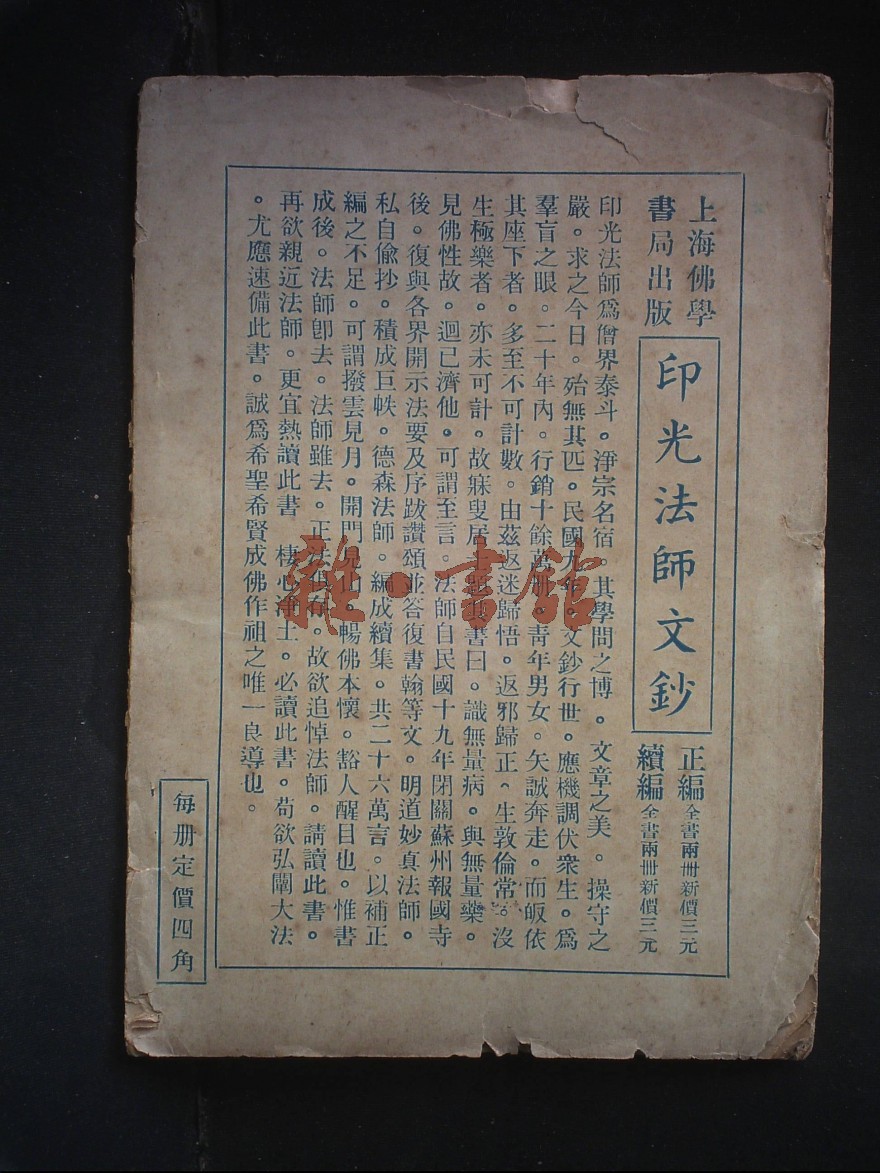 上海佛學
書局出版
印光法師文鈔
正編全書兩册新價三元
續編全書兩册新價三元
印光法師爲僧界泰斗。淨宗名宿。其學問之博。文章之美。操守之
嚴。求之今日。殆無其匹。民國九年。文鈔行世。應機調伏衆生。爲
羣盲之眼。二十年內。行銷十餘萬册。青年男女。矢誠奔走。而皈依
其座下者。多至不可計數。由茲返迷歸悟。返邪歸正。生敦倫常。沒
生極樂者。亦未可計。故寐叟居 書曰。識無量病。與無量藥。
見佛性故。迴已濟他。可謂至言。法師自民國十九年閉關蘇州報國寺
後。復與各界開示法要及序跋讚頌並答復書翰等文。明道妙真法師。
私自偷抄。積成巨帙。德森法師。編成續集。共二十六萬言。以補正
編之不足。可謂撥雲見月。開門見山。暢佛本懷。豁人醒目也。惟書
成後。法師卽去。法師雖去。正法俱存。故欲追悼法師。請讀此書。
再欲親近法師。更宜熱讀此書 棲心淨土。必讀此書。苟欲弘闡大法
。尤應速備此書。誠爲希聖希賢成佛作祖之唯一良導也。
每册定價四角
雜·書館